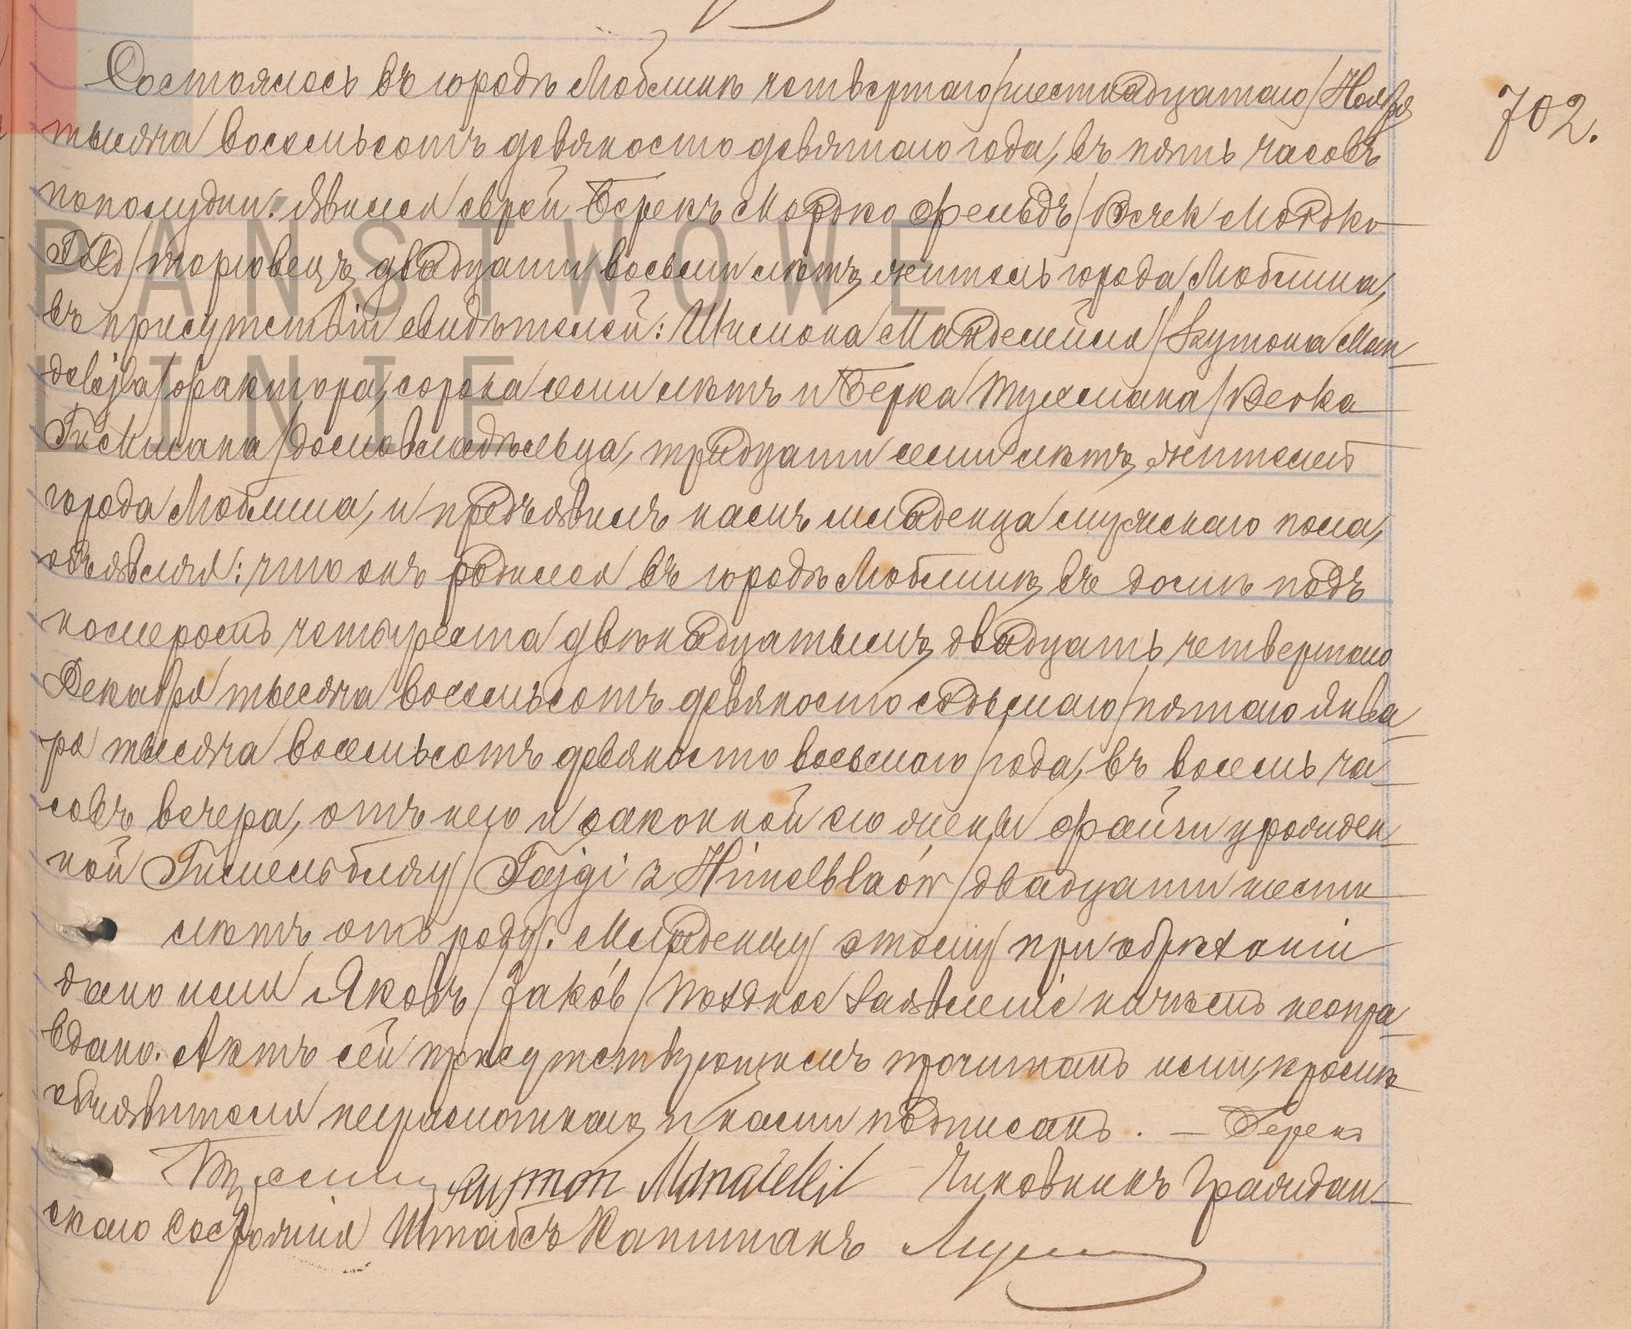 Состоялось въ городѣ Люблинѣ четвертаго/шестнадцатаго/Ноября
702.
тысяча восемьсотъ девяносто девятаго года, въ пять часовъ
пополудни. Явился еврей Берекъ Мордко Фельдъ/Berek Mordko
Feld/торговецъ, двадцати восьми лѣтъ, житель города Люблина,
въ присутствіи свидѣтелей: Шимона Мандельейля/Szymona Man-
delejla/фактора, сорока семи лѣтъ и Берка Тухмана/Berka
домовладѣльца, тридцати семи лѣтъ, жителей
города Люблина, и предъявилъ намъ младенца мужскаго пола,
объявляя: что онъ родился въ городѣ Люблинѣ, въ домѣ подъ
номеромъ четыреста двѣнадцатымъ, двадцать четвертаго
Декабря тысяча восемьсотъ девяносто седьмаго/пятаго Янва-
ря тысяча восемьсотъ девяносто восьмаго/года, въ восемь ча-
совъ вечера, отъ него и законной его жены Файги урожден-
ной Гимельбляу/Fajgi z Himelblaów/двадцати шести
лѣтъ отъ роду. Младенцу этому при обрѣзаніи
дано имя Яковъ/Jakób/Позднее заявленіе ничѣмъ неопра-
вдано. Актъ сей присутствующимъ прочитанъ, ими, кромѣ
объявителя неграмотнаго, и нами подписанъ. — Берекъ
Szymon Mandelejl Чиновникъ Граждан-
скаго Состоянія Штабсъ Капитанъ
PAŃSTWOWE